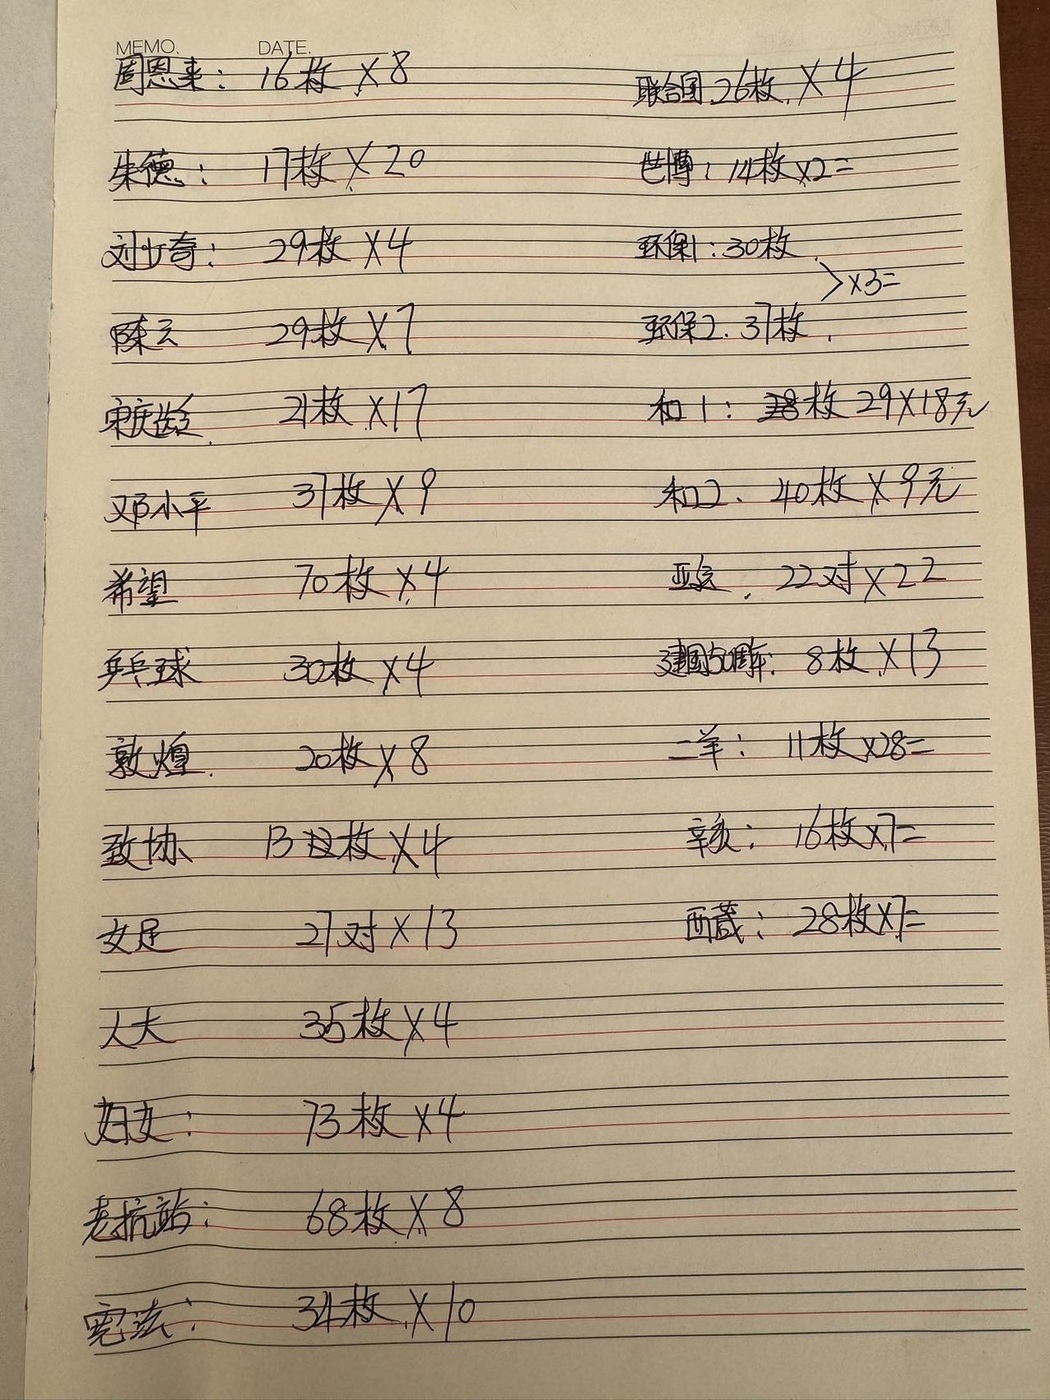 MEMO. DATE.
周恩来：16枚 X8
朱德：17枚 X20
刘少奇：29枚 X4
陈云 29枚 X7
宋庆龄 21枚 X17
邓小平 37枚 X9
希望 70枚 X4
乒乓球 30枚 X4
敦煌. 20枚 X8
政协 13枚 X4
女足 27对 X13
人大 35枚 X4
妇女：73枚 X4
老抗站：68枚 X8
宪法：34枚 X10
联合国.26枚. X4
世博：14枚 X2=
环保1：30枚
>X3=
环保2. 37枚.
和1：枚 29X18元
和2. 40枚 X9元
亚运. 22对 X22
建国50周年：8枚 X13
二羊：11枚 X28=
辛亥：16枚 X7=
西藏：28枚 X7=